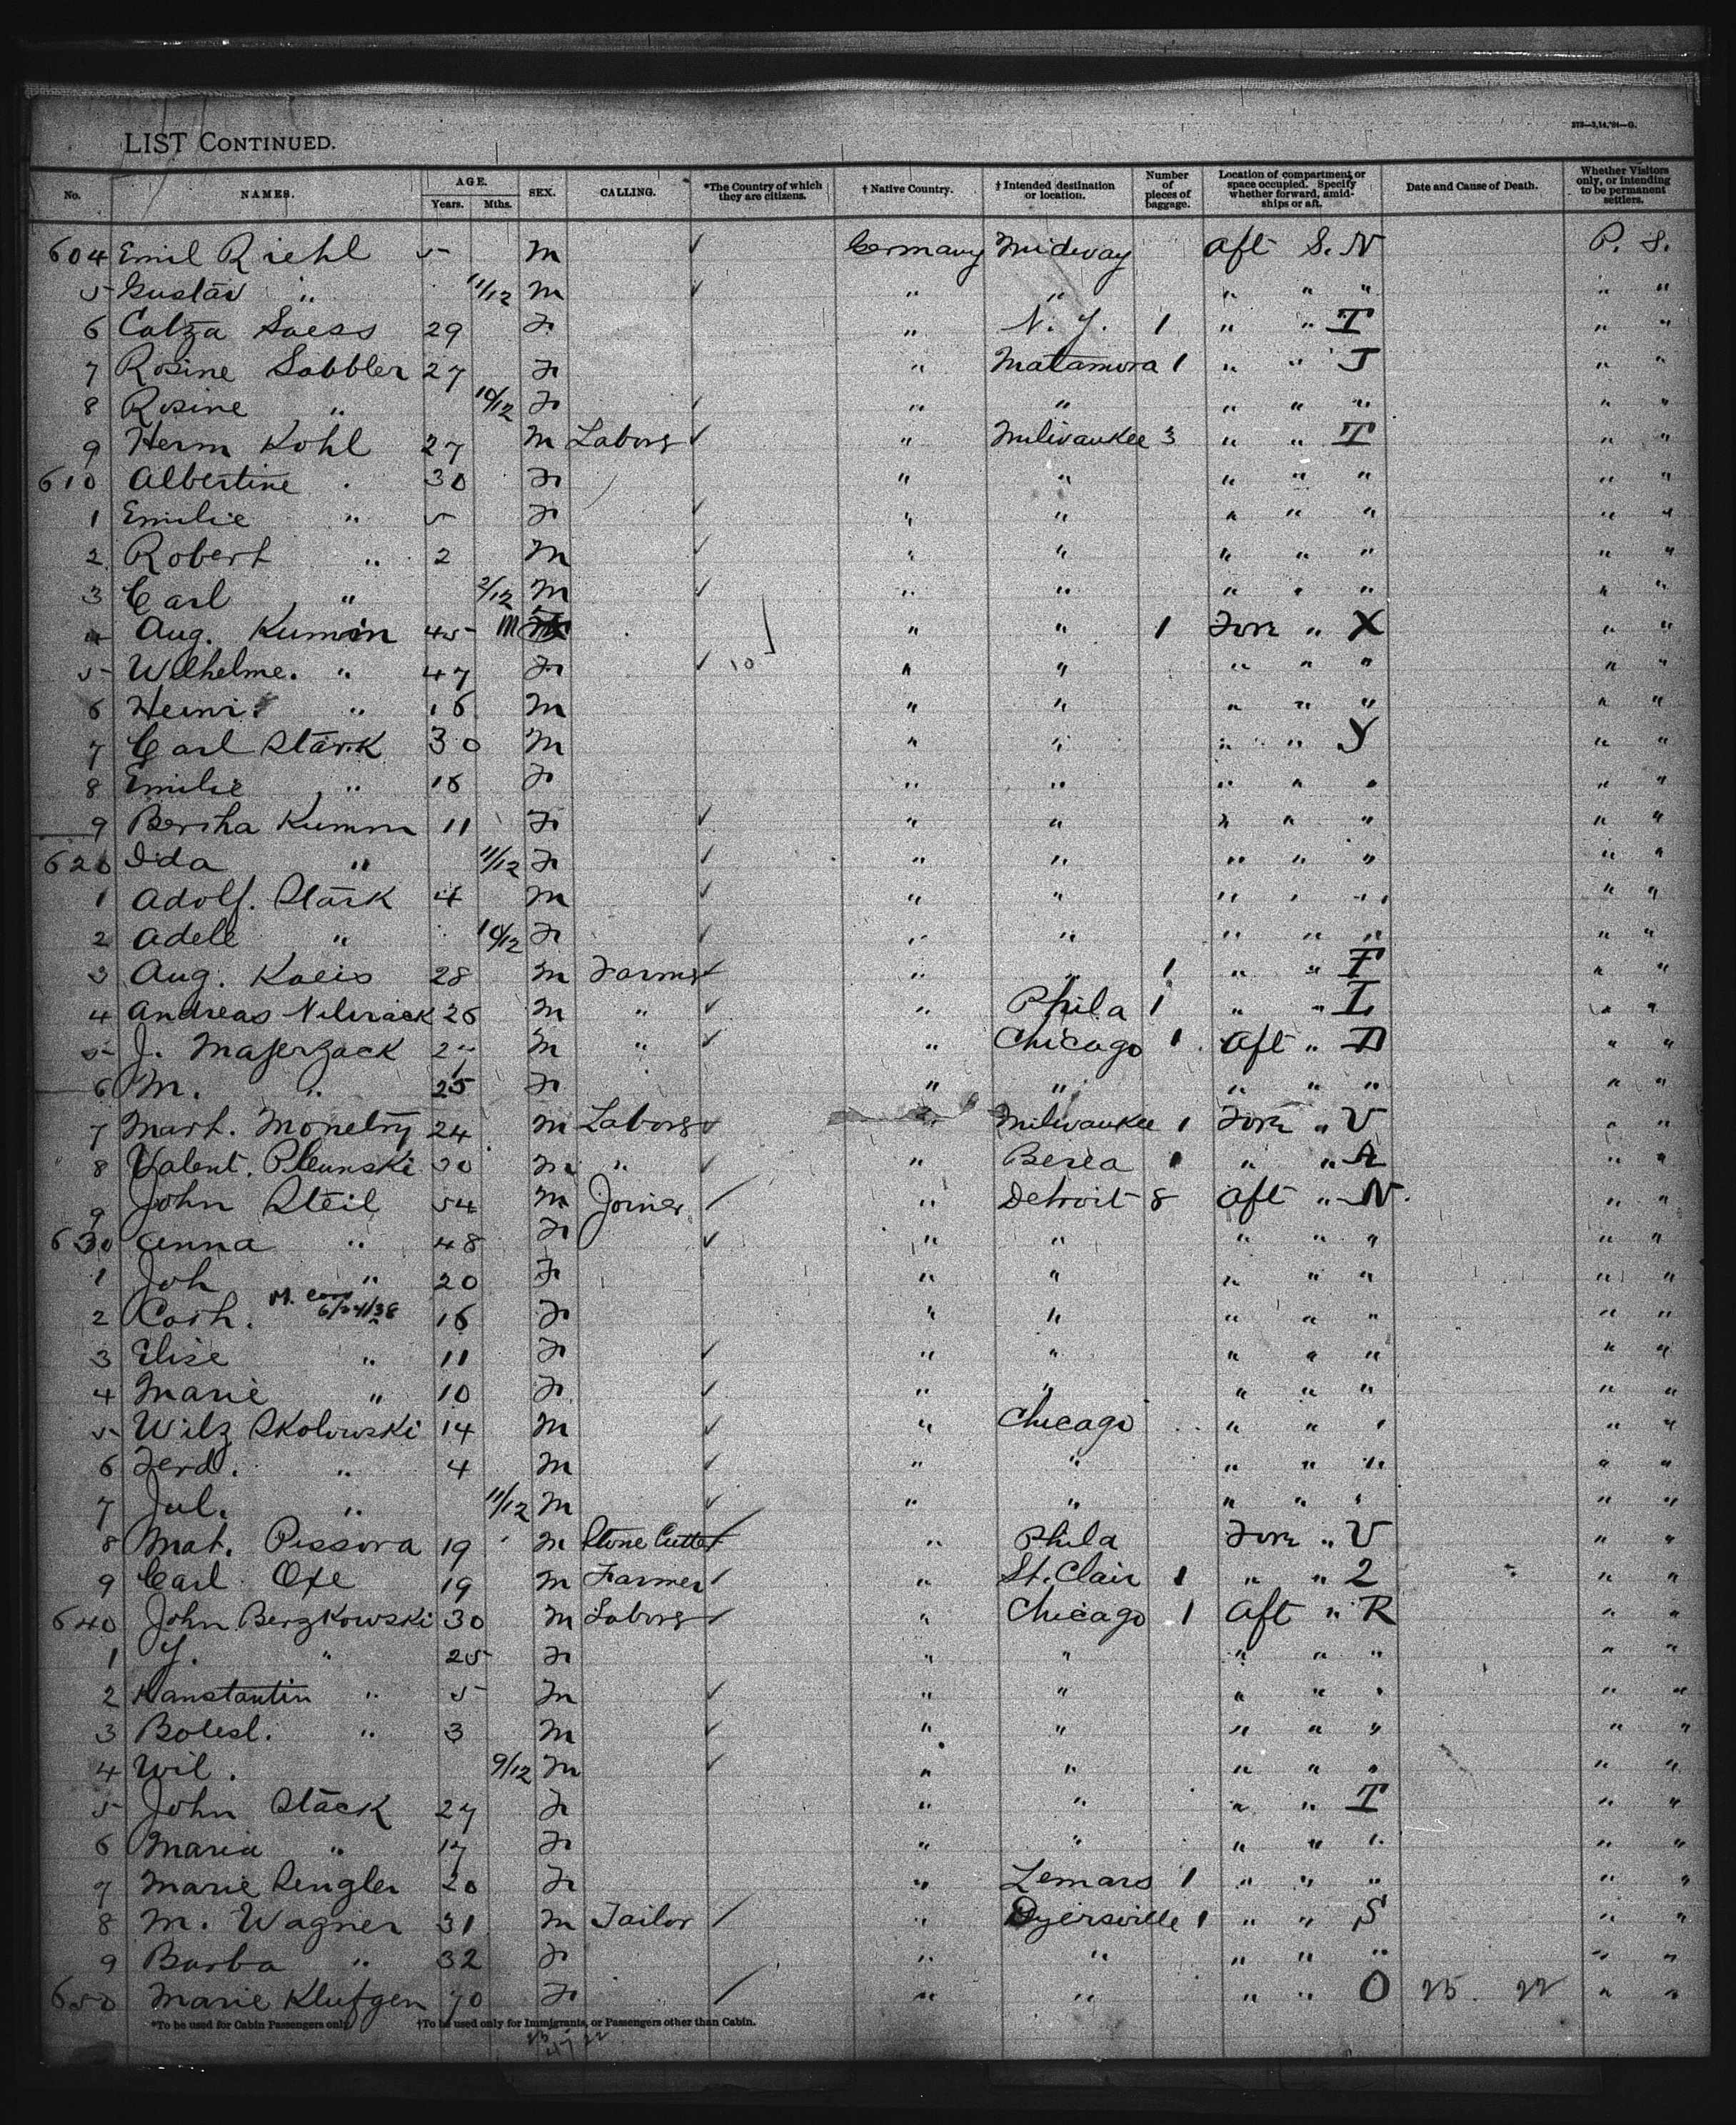 LIST CONTINUED.
No. NAMES. AGE. Years. Mths. SEX. CALLING. *The Country of which they are citizens. † Native Country. † Intended destination or location. Number of pieces of baggage. Location of compartment or space occupied. Specify whether forward, amidships or aft. Date and Cause of Death. Whether Visitors only, or intending to be permanent settlers.
604 Emil Riehl 5 M ✓ Germany Midway Aft S. N P. S.
5 Gustav " 11/12 M ✓ " " " " " " "
6 Calza Saess 29 F " N. Y. 1 " " T " "
7 Rosine Sabbler 27 F " Matamora 1 " " J " "
8 Rosine " 10/12 F ✓ " " " " " " "
9 Herm Kohl 27 M Labors ✓ " Milwaukee 3 " " T " "
610 Albertine " 30 F " " " " " " "
1 Emilie " 5 F ✓ " " " " " " "
2 Robert " 2 M ✓ " " " " " " "
3 Carl " 2/12 M ✓ " " " " " " "
4 Aug. Kumm 45 M " " 1 Forw " X " "
5 Wilhelme. " 47 F ✓ 10 " " " " " " "
6 Heinr. " 16 M " " " " " " "
7 Carl Stark 30 M " " " " Y " "
8 Emilie " 18 F " " " " " " "
9 Bertha Kumm 11 F ✓ " " " " " " "
620 Ida " 11/12 F ✓ " " " " " " "
1 Adolf. Stark 4 M ✓ " " " " " " "
2 Adele " 10/12 F ✓ " " " " " " "
3 Aug. Kaeis 28 M Farmer ✓ " " 1 " " T " "
4 Andreas 26 M " ✓ " Phila 1 " " L " "
5 J. Majerzack M " ✓ " Chicago 1 Aft " D " "
6 M. " 25 F " " " " " " "
7 Mart. Monetry 24 M Labors ✓ " Milwaukee 1 Forw " V " "
8 Valent. Plewnski 30 M " ✓ " Berea 1 " " A " "
9 John Steil 54 M Joiner ✓ " Detroit 8 Aft " N " "
630 Anna " 48 F ✓ " " " " " " "
1 Joh " 20 F " " " " " " "
2 Cath. 6/24/38 16 F " " " " " " "
3 Elise " 11 F ✓ " " " " " " "
4 Marie " 10 F ✓ " " " " " " "
5 Wilz Skolowski 14 M ✓ " Chicago " " " " "
6 Ferd. " 4 M ✓ " " " " " " "
7 Jul. " 11/12 M ✓ " " " " " " "
8 Mat. Pissora 19 M Stone Cutter ✓ " Phila Forw " V " "
9 Carl Oxe 19 M Farmer ✓ " St. Clair 1 " " 2 " "
640 John Berzkowski 30 M Labors ✓ " Chicago 1 Aft " R " "
1 Y. " 25 F " " " " " " "
2 Kanstantin " 5 M ✓ " " " " " " "
3 Bolesl. " 3 M ✓ " " " " " " "
4 Wil. 9/12 M ✓ " " " " " " "
5 John Stack 27 F " " " " T " "
6 Maria " 17 F " " " " " " "
7 Marie Rengler 20 F " Lemars 1 " " " " "
8 M. Wagner 31 M Tailor ✓ " Dyersville 1 " " S " "
9 Barba " 32 F " " " " " " "
650 Marie Klufgen 70 F ✓ " " " " O 25. 22 " "
*To be used for Cabin Passengers only. †To be used only for Immigrants, or Passengers other than Cabin.